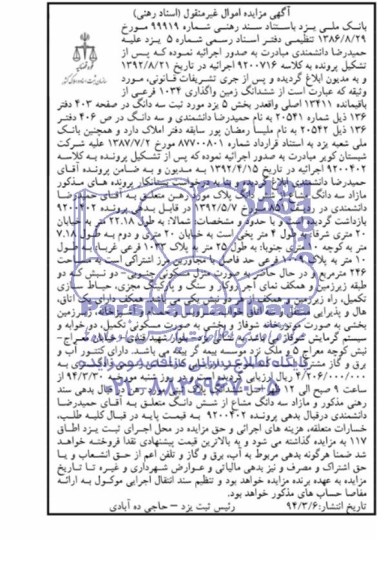 آگهی مزایده اموال غیرمنقول (اسناد رهنی)
بانک ملی یزد باستناد سند رهنی شماره ۹۹۹۱۹ مورخ
۱۳۸۶/۸/۲۹ تنظیمی دفتر اسناد رسمی شماره ۵ یزد علیه
حمیدرضا دانشمندی مبادرت به صدور اجرائیه نموده که پس از
تشکیل پرونده به کلاسه ۹۲۰۰۷۱۶ اجرائیه در تاریخ ۱۳۹۲/۸/۲۱
و به مدیون ابلاغ گردیده و پس از جری تشریفات قانونی، مورد
وثیقه که عبارت است از ششدانگ زمین واگذاری ۱۰۳۴ فرعی از
باقیمانده ۱۳۴۱۱ اصلی واقعدر بخش ۵ یزد مورد ثبت سه دانگ در صفحه ۴۰۳ دفتر
۱۳۶ ذیل شماره ۲۰۵۴۱ به نام حمیدرضا دانشمندی و سه دانگ در ص ۴۰۶ دفتر
۱۳۶ ذیل ۲۰۵۴۲ به نام علیرضا رمضان پور سابقه دفتر املاک دارد و همچنین بانک
ملی شعبه یزد به استناد قرارداد شماره ۸۷۷۰۰۸۰۱ مورخ ۱۳۸۷/۷/۲ علیه شرکت
شبستان کویر مبادرت به صدور اجرائیه نموده که پس از تشکیل پرونده به کلاسه
۹۲۰۰۴۰۲ اجرائیه در تاریخ ۱۳۹۲/۴/۱۵ به مدیون و به ضامن پرونده آقای
حمیدرضا دانشمندی ابلاغ گردیده و بنا به درخواست بستانکار پرونده های مذکور
مازاد سه دانگ مشاع از پلاک مورد رهن متعلق به آقای حمیدرضا
دانشمندی در روز ۱۳۹۲/۵/۷ در قبال بدهی پرونده ۹۲۰۰۴۰۲
بازداشت گردیده است و با حدود و مشخصات شمالا: به طول ۲۲.۱۸ متر به خیابان
۲۰ متری شرقا: به طول ۴ متر پخی است به خیابان ۲۰ متری و دوم به طول ۷.۱۸
متر به کوچه ۱۰ متری جنوبا: به طول ۲۵ متر به پلاک ۱۰۳۳ فرعی غربا: به طول
۱۰ متر به پلاک فرعی حد فاصل با مجاورین مرز اشتراکی است به مساحت
۲۴۶ مترمربع و در حال حاضر به صورت منزل مسکونی جنوبی- دو نبش که دو
طبقه زیرزمین و همکف نمای آجر و سنگ و پارکینگ مجزی، حیاط سازی
تکمیل، راه زیرزمین و همکف از در نبش یکی می باشد همکف دارای یک اتاق،
هال و پذیرایی خانه، زیرزمین
بخشی به صورت موتورخانه شوفاژ و بخشی به صورت مسکونی تکمیل، دو خوابه و
سیستم گرمایش شوفاژ می باشد خیابان معراج-
نبش کوچه معراج ۵ و ملک نزد موسسه بیمه گر بیمه می باشد. دارای کنتور آب و
برق و گاز
۴/۲۰۶/۰۰۰/۰۰۰ ریال ارزیابی گردیده مورخه ۹۴/۳/۳۰ از
ساعت ۹ صبح الی ۱۲ در قبال بدهی سند
رهنی مذکور و مازاد سه دانگ مشاع از شش دانگ متعلق به آقای حمیدرضا
دانشمندی درقبال بدهی پرونده ۹۲۰۰۴۰۲ به قیمت پایه در قبال کلیه طلب،
خسارات متعلقه، هزینه های اجرائی و حق مزایده در محل اجرای ثبت یزد اطاق
۱۱۷ به مزایده گذاشته می شود و به بالاترین قیمت پیشنهادی نقدا فروخته خواهد
شد ضمنا هرگونه بدهی مربوط به آب، برق و گاز و تلفن اعم از حق انشعاب و یا
حق اشتراک و مصرف و نیز بدهی مالیاتی و عوارض شهرداری و غیره تا تاریخ
مزایده به عهده برنده مزایده خواهد بود و تنظیم سند انتقال اجرایی موکول به ارائه
مفاصا حساب های مذکور خواهد بود.
تاریخ انتشار: ۹۴/۳/۶ رئیس ثبت یزد – حاجی ده آبادی